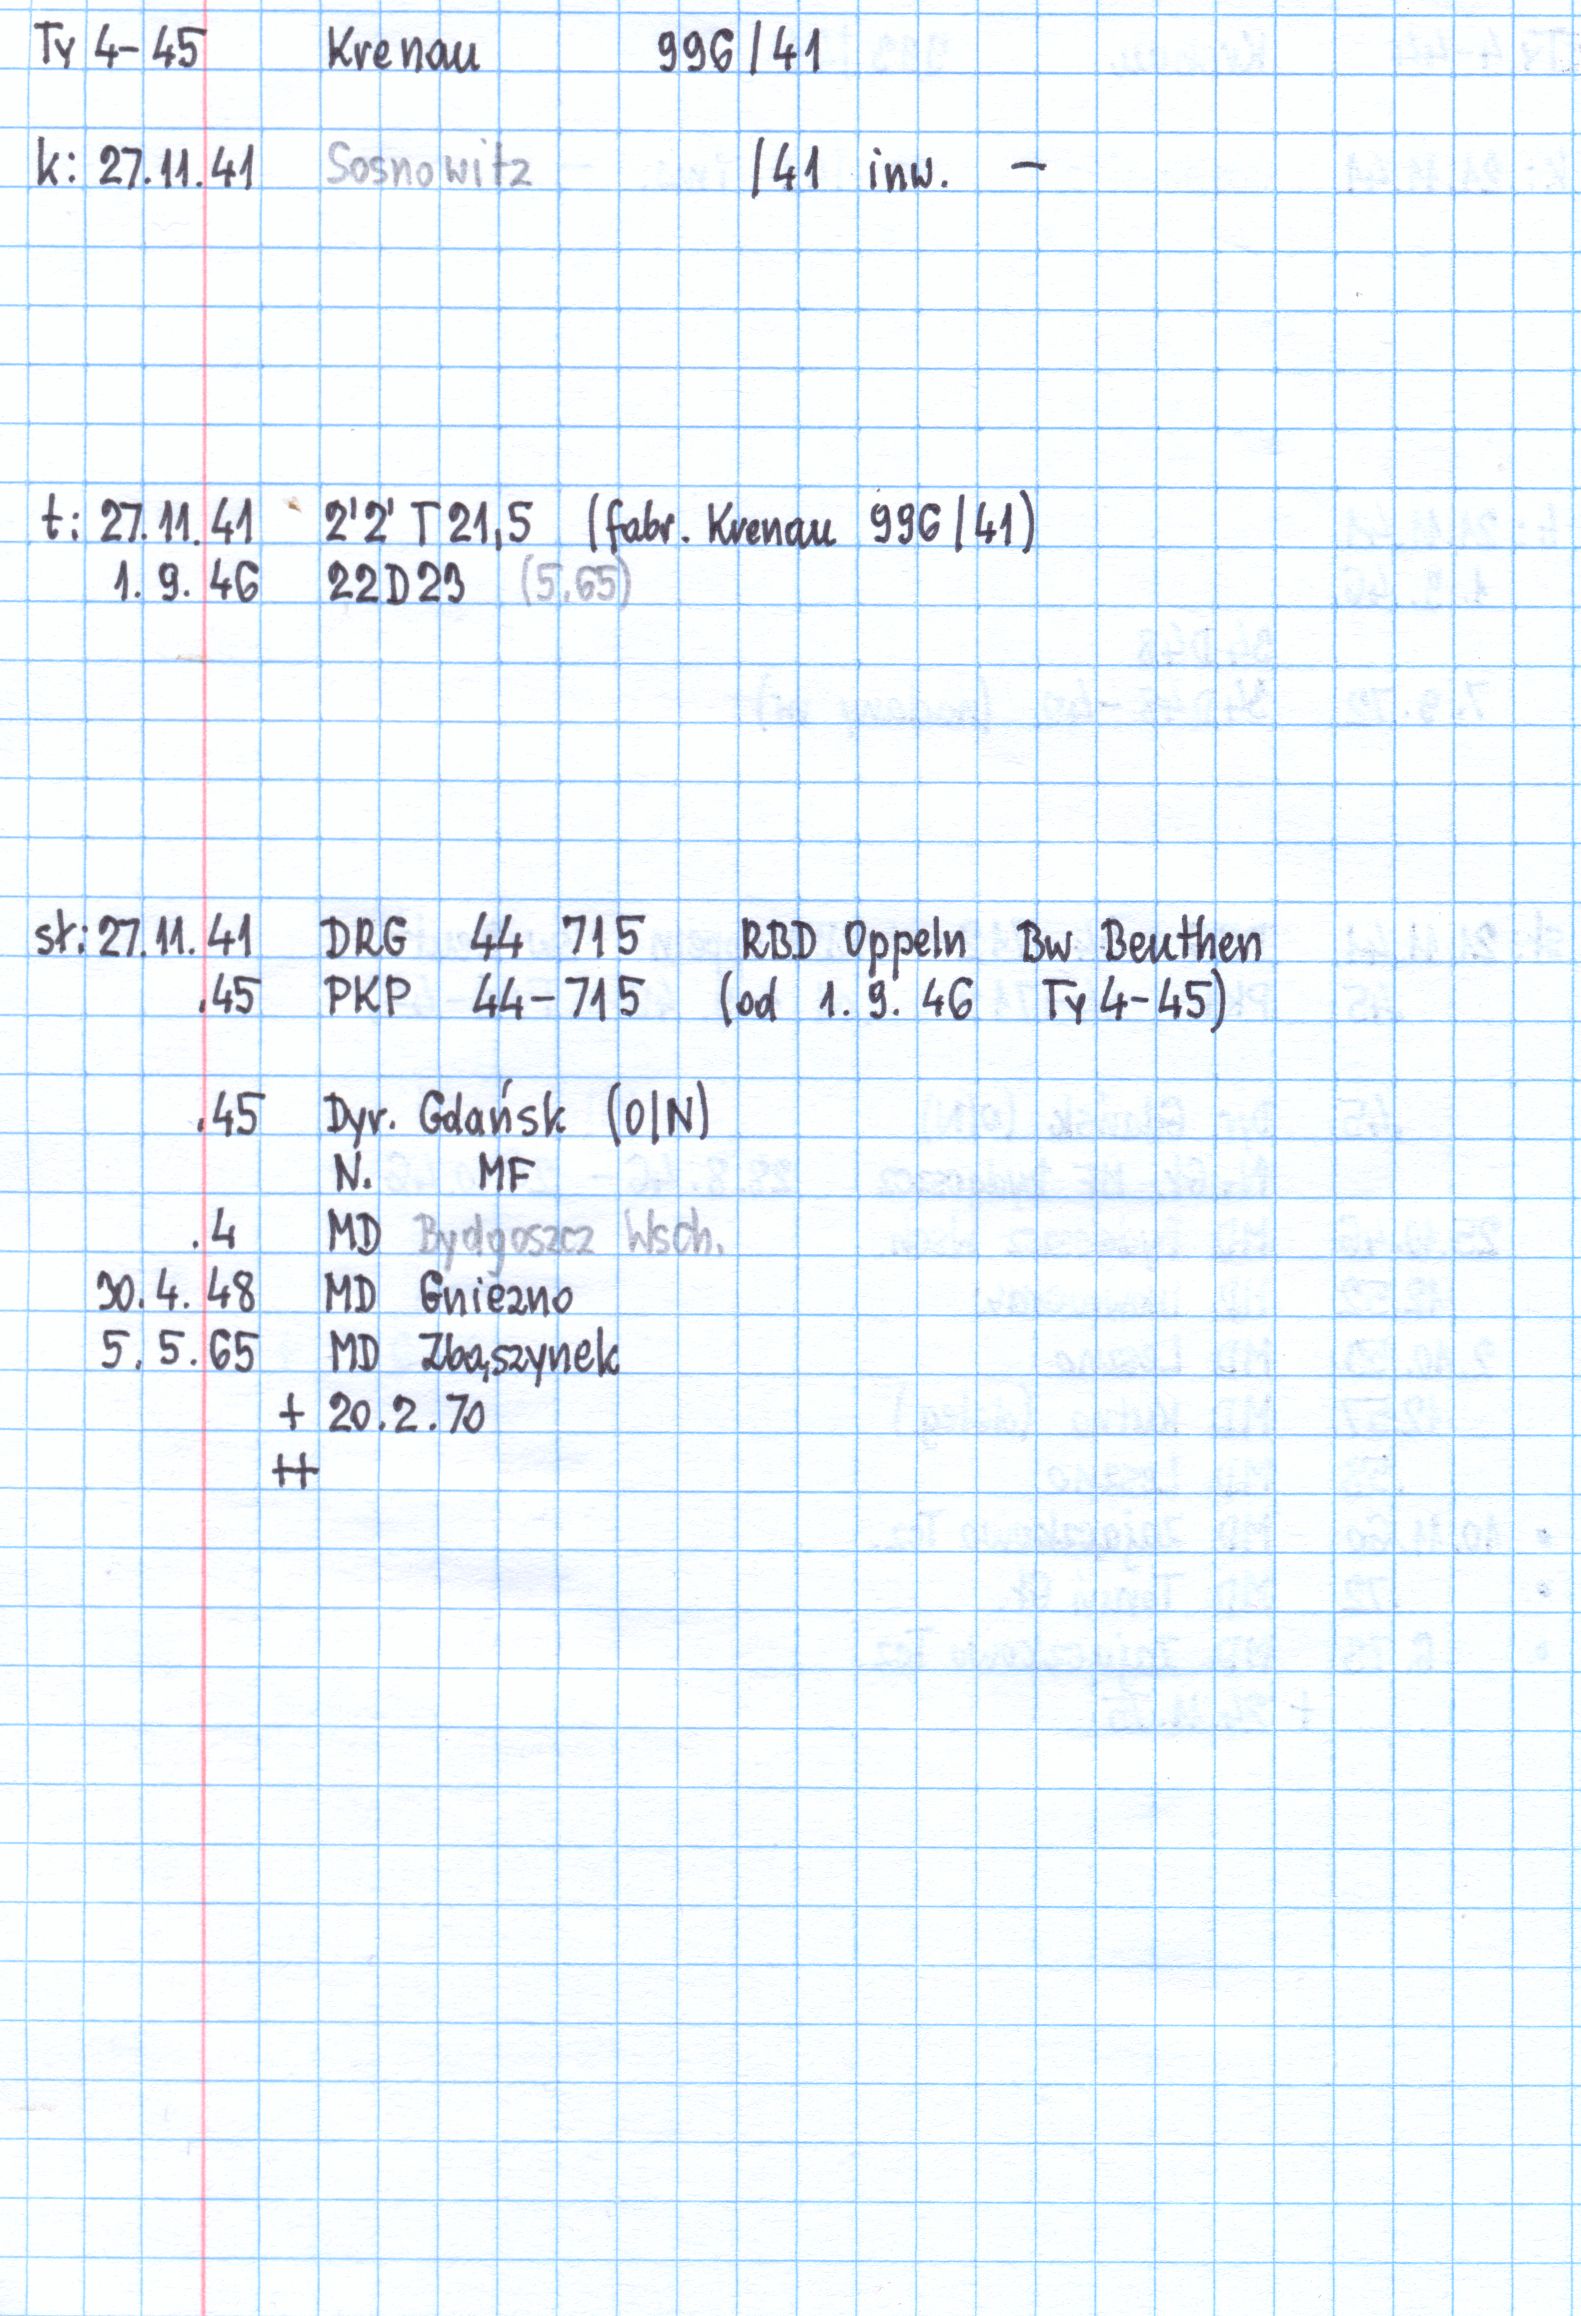 Ty 4-45 Krenau 996/41
k: 27.11.41 Sosnowitz /41 inw. -
t: 27.11.41 2'2' T 21,5 (fabr. Krenau 996/41)
1. 9. 46 22D23 (5.65)
st: 27.11.41 DRG 44 715 RBD Oppeln Bw Beuthen
.45 PKP 44-715 (od 1. 9. 46 Ty 4-45)
.45 Dyr. Gdańsk (O/N)
N. MF
.4 MD Bydgoszcz Wsch.
30. 4. 48 MD Gniezno
5. 5. 65 MD Zbąszynek
+ 20.2.70
++